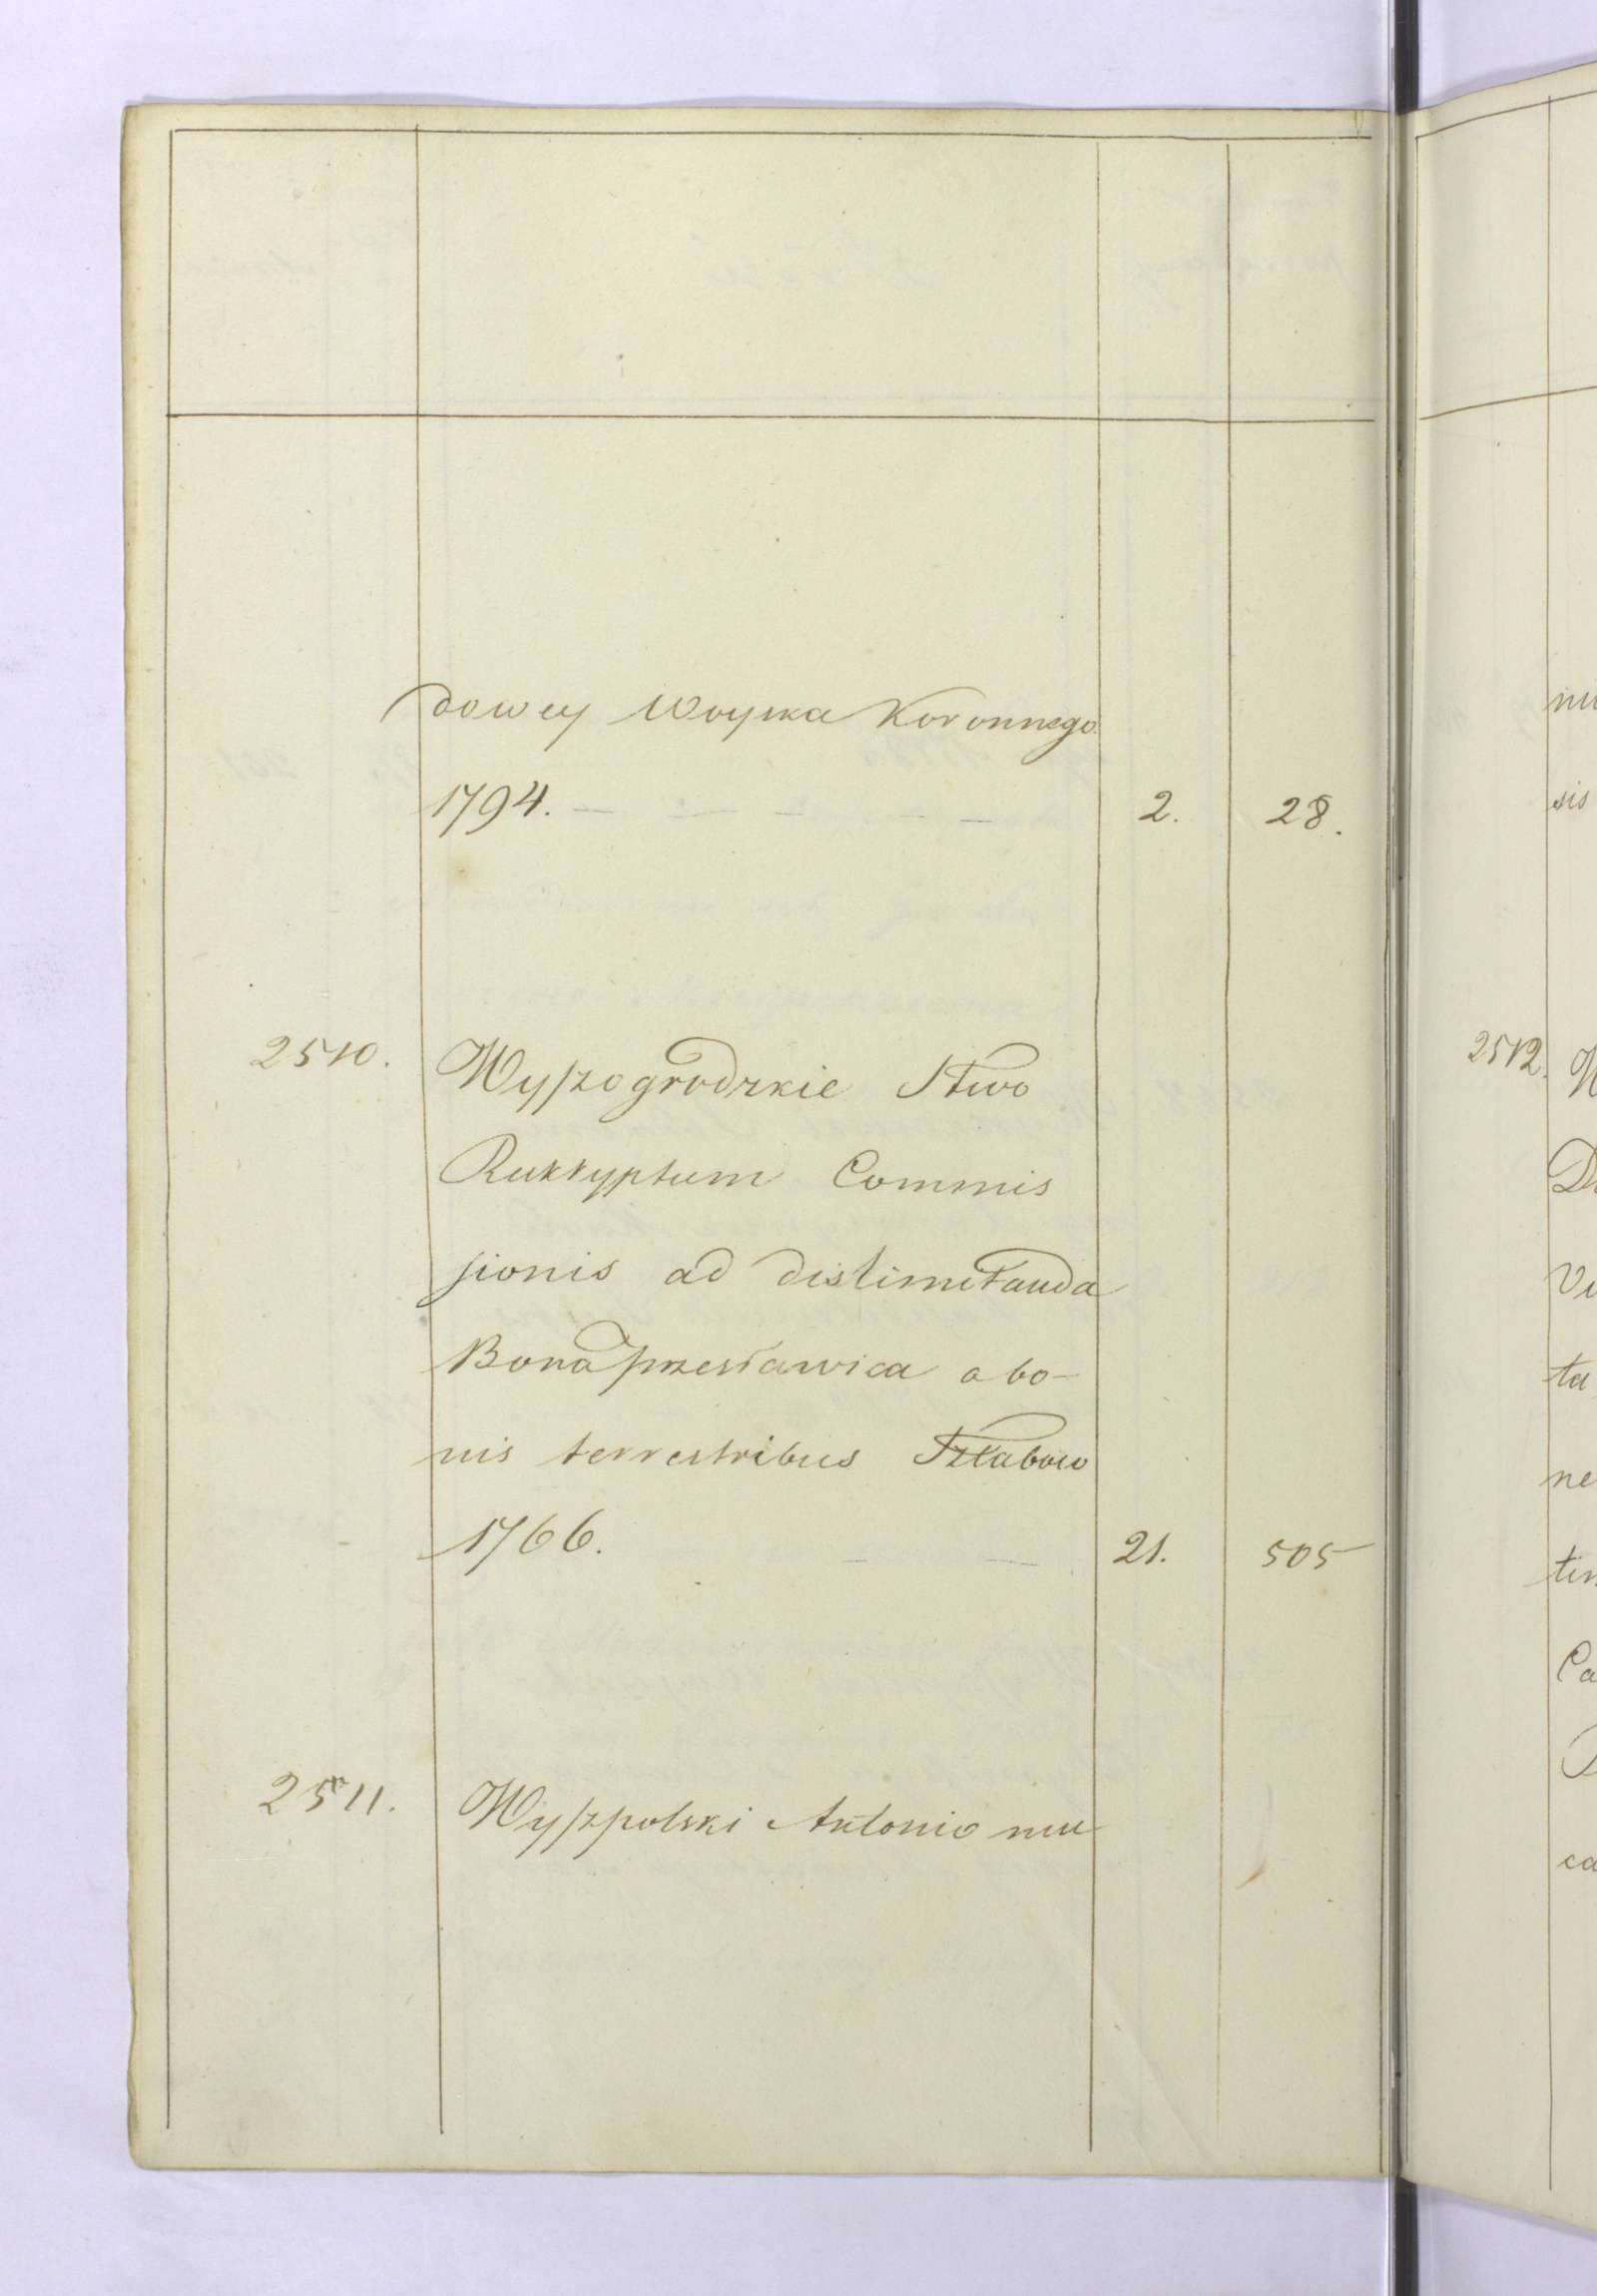 dowey Woyska Koronnego.
1794. — — — — — 2. 28.
2510. Wyszogrodzkie Stwo
Reskryptum Commis
sionis ad dislimitanda
Bona przesławica a bo-
nis terrestribus Szłabow
1766. — — 21. 505
2511. Wyszpolski Antonio nu
nu
sis
2512. W
D
Vi
ta
ne
ter
Ca
ca